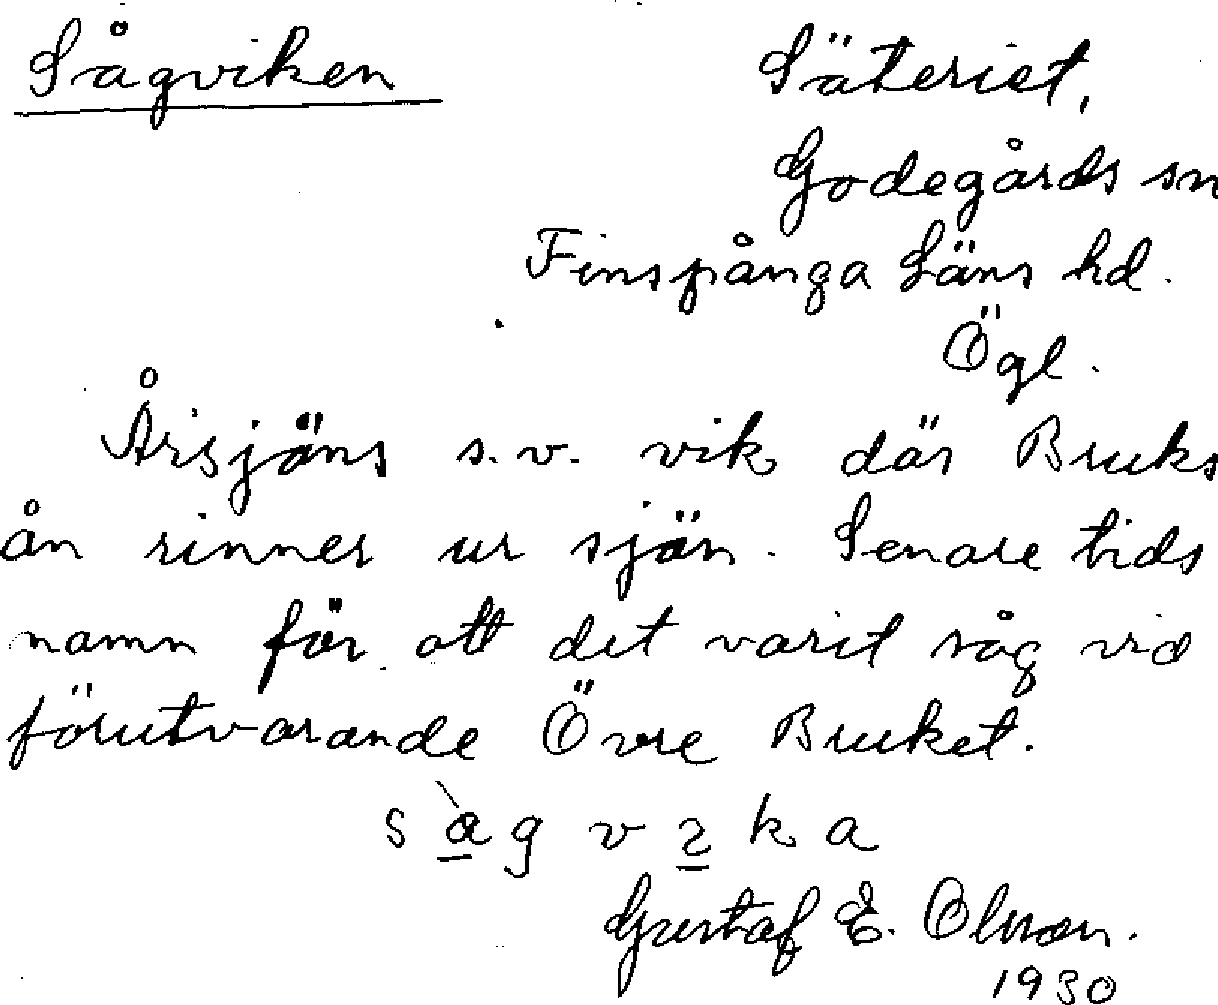 Sågviken Säteriet,
Godegårds sn
Finspånga Läns hd.
Ögl.
Årsjöns s.v. vik där Bruks
ån rinner ur sjön. Senare tids
namn för att det varit såg vid
förutvarande Övre Bruket.
s a g v ɩ k a
Gustaf E. Olsson.
1930